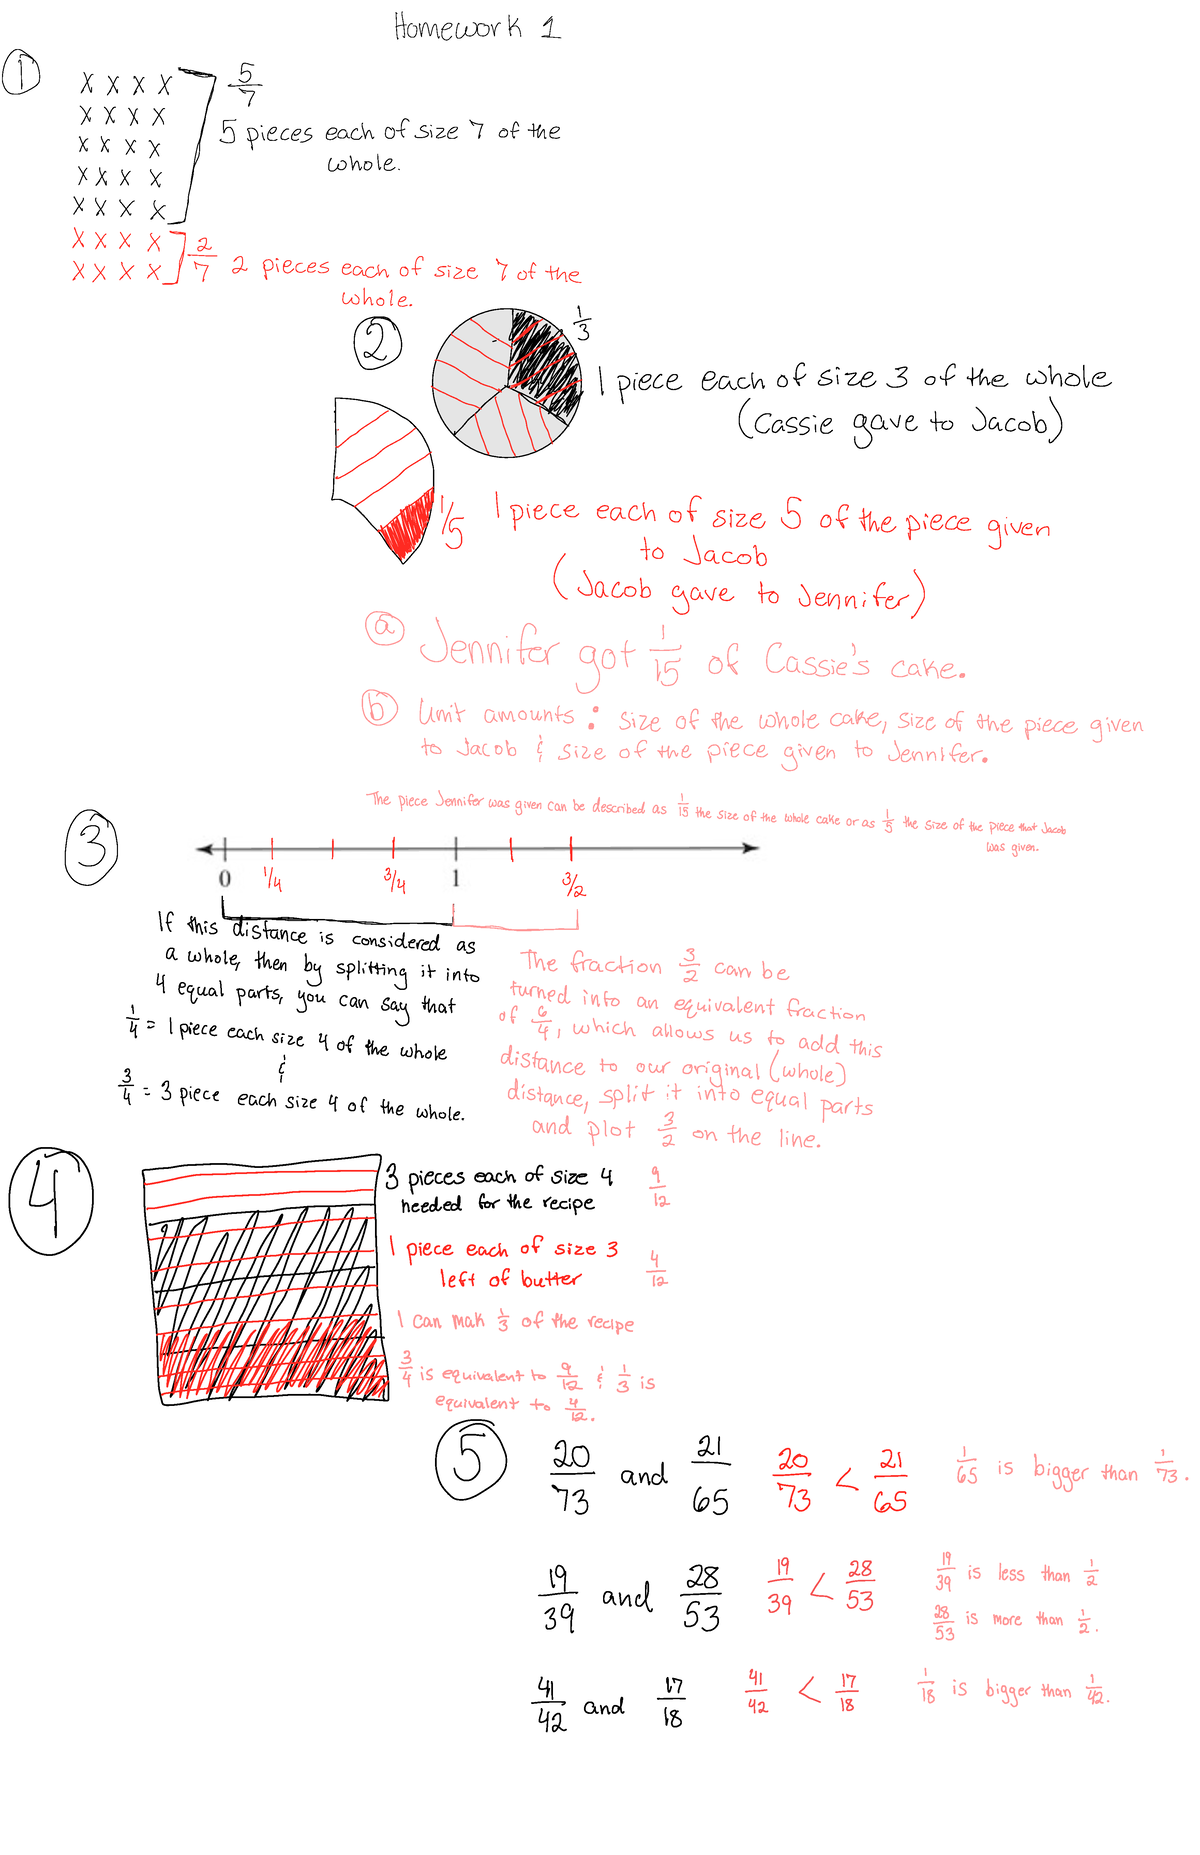 Homework 1
①
X X X X
X X X X
X X X X
X X X X
X X X X
X X X X
X X X X
5/7
5 pieces each of size 7 of the
whole.
2/7 2 pieces each of size 7 of the
whole.
②
1/3
1 piece each of size 3 of the whole
(Cassie gave to Jacob)
1/5
1 piece each of size 5 of the piece given
to Jacob
(Jacob gave to Jennifer)
ⓐ Jennifer got 1/15 of Cassie's cake.
ⓑ Unit amounts: size of the whole cake, size of the piece given
to Jacob & size of the piece given to Jennifer.
The piece Jennifer was given can be described as 1/15 the size of the whole cake or as 1/5 the size of the piece that Jacob
was given.
③
0 1/4 3/4 1 3/2
If this distance is considered as
a whole, then by splitting it into
4 equal parts, you can say that
1/4 = 1 piece each size 4 of the whole
&
3/4 = 3 piece each size 4 of the whole.
The fraction 3/2 can be
turned into an equivalent fraction
of 6/4, which allows us to add this
distance to our original (whole)
distance, split it into equal parts
and plot 3/2 on the line.
④
3 pieces each of size 4 9/12
needed for the recipe
1 piece each of size 3 4/12
left of butter
I can mak 1/3 of the recipe
3/4 is equivalent to 9/12 & 1/3 is
equivalent to 4/12.
⑤
20/73 and 21/65 20/73 < 21/65 1/65 is bigger than 1/73.
19/39 and 28/53 19/39 < 28/53 19/39 is less than 1/2
28/53 is more than 1/2.
41/42 and 17/18 41/42 < 17/18 1/18 is bigger than 1/42.